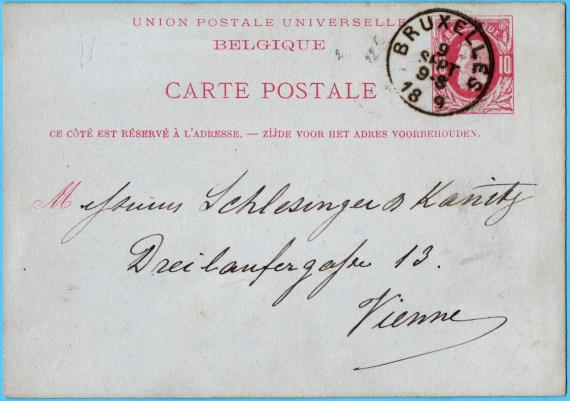 UNION POSTALE UNIVERSELLE
BELGIQUE
CARTE POSTALE
CE CÔTÉ EST RÉSERVÉ À L'ADRESSE. — ZIJDE VOOR HET ADRES VOORBEHOUDEN.
BRUXELLES
9
SEPT
9-S
18 9
10
Messieurs Schlesinger & Kanitz
Dreilaufergasse 13.
Vienne